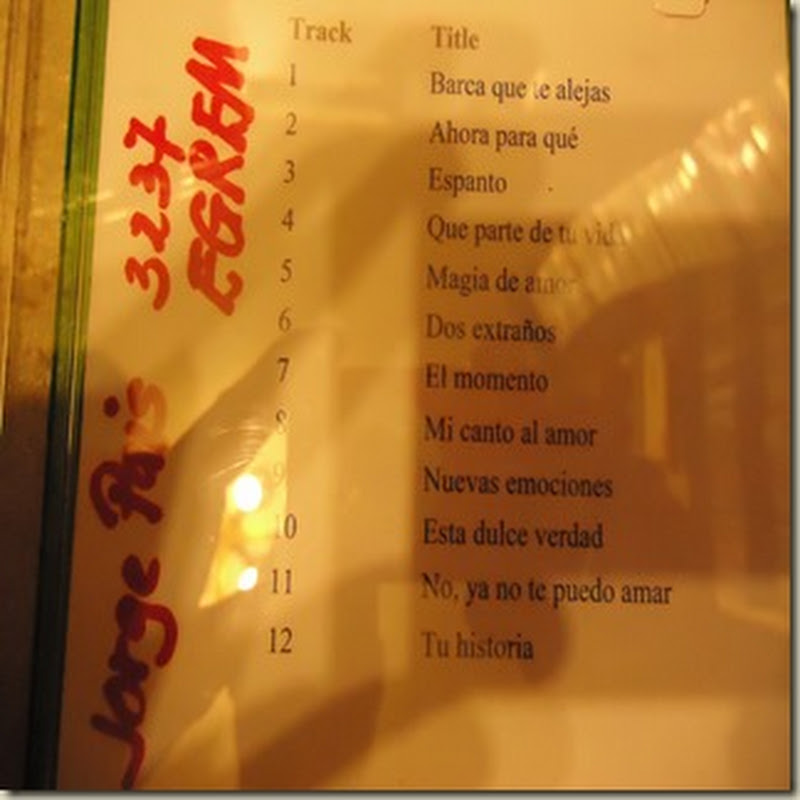 Track Title
1 Barca que te alejas
2 Ahora para qué
3 Espanto
4 Que parte de tu vida
5 Magia de amor
6 Dos extraños
7 El momento
8 Mi canto al amor
9 Nuevas emociones
10 Esta dulce verdad
11 No, ya no te puedo amar
12 Tu historia
Jorge Pais 3237
EGREM